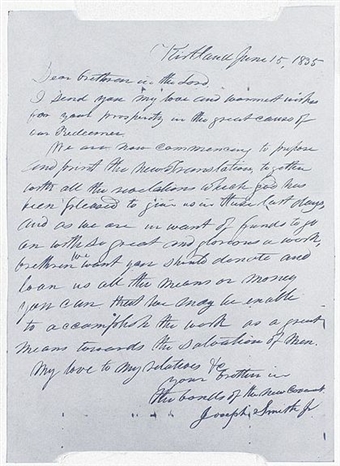 Kirtland June 15, 1835
Dear brethren in the Lord
I send you my love and warmest wishes
for your prosperity in the great cause of
our Redeemer.
We are now commencing to prepare
and print the New Translation, together
with all the revelations which God has
been pleased to give us in these last days,
and as we are in want of funds to go
on with so great and glorious a work,
brethren we want you should donate and
loan us all the means or money
you can that we may be enable
to accomplish the work as a great
means towards the salvation of Men.
My love to my relatives &c
your brother in
the bonds of the new Covenant
Joseph Smith Jr